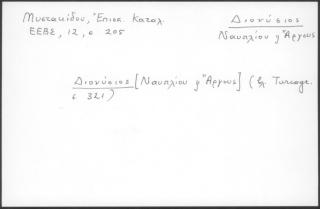 Μυστακίδου, Ἐπισκ. Καταλ.
ΕΕΒΣ, 12, σ 205
Διονύσιος
Ναυπλίου & Ἄργους
Διονύσιος [Ναυπλίου & Ἄργους] (βλ. Turcogr.
σ 321)